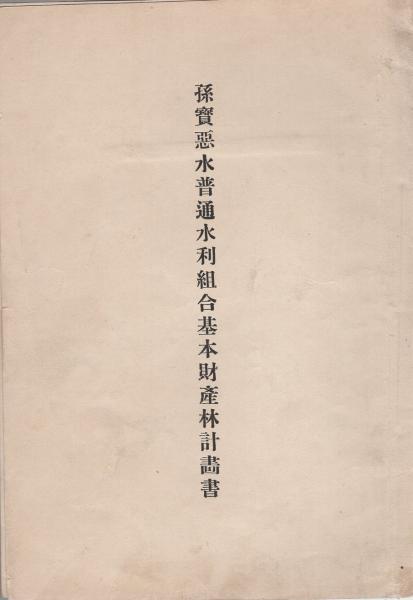 孫寶惡水普通水利組合基本財產林計畵書